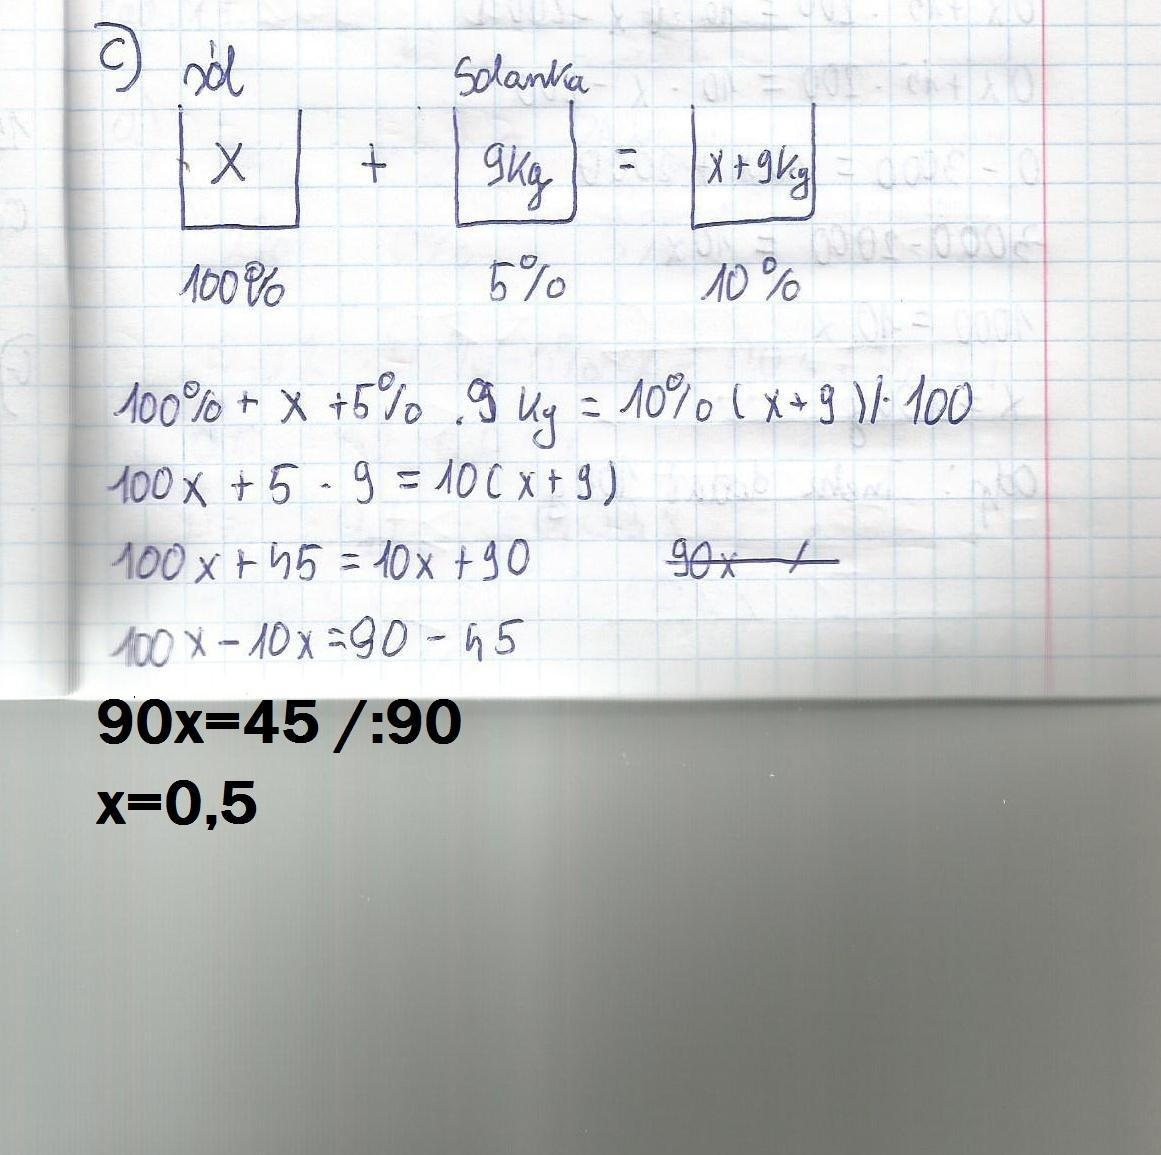 c) sól Solanka
x + 9kg = x+9kg
100% 5% 10%
100% + x +5% . 9 kg = 10% ( x+9 )/· 100
100x + 5 · 9 = 10( x+9)
100x+45=10x+90 90x /
100x-10x=90-45
90x=45 /:90
x=0,5